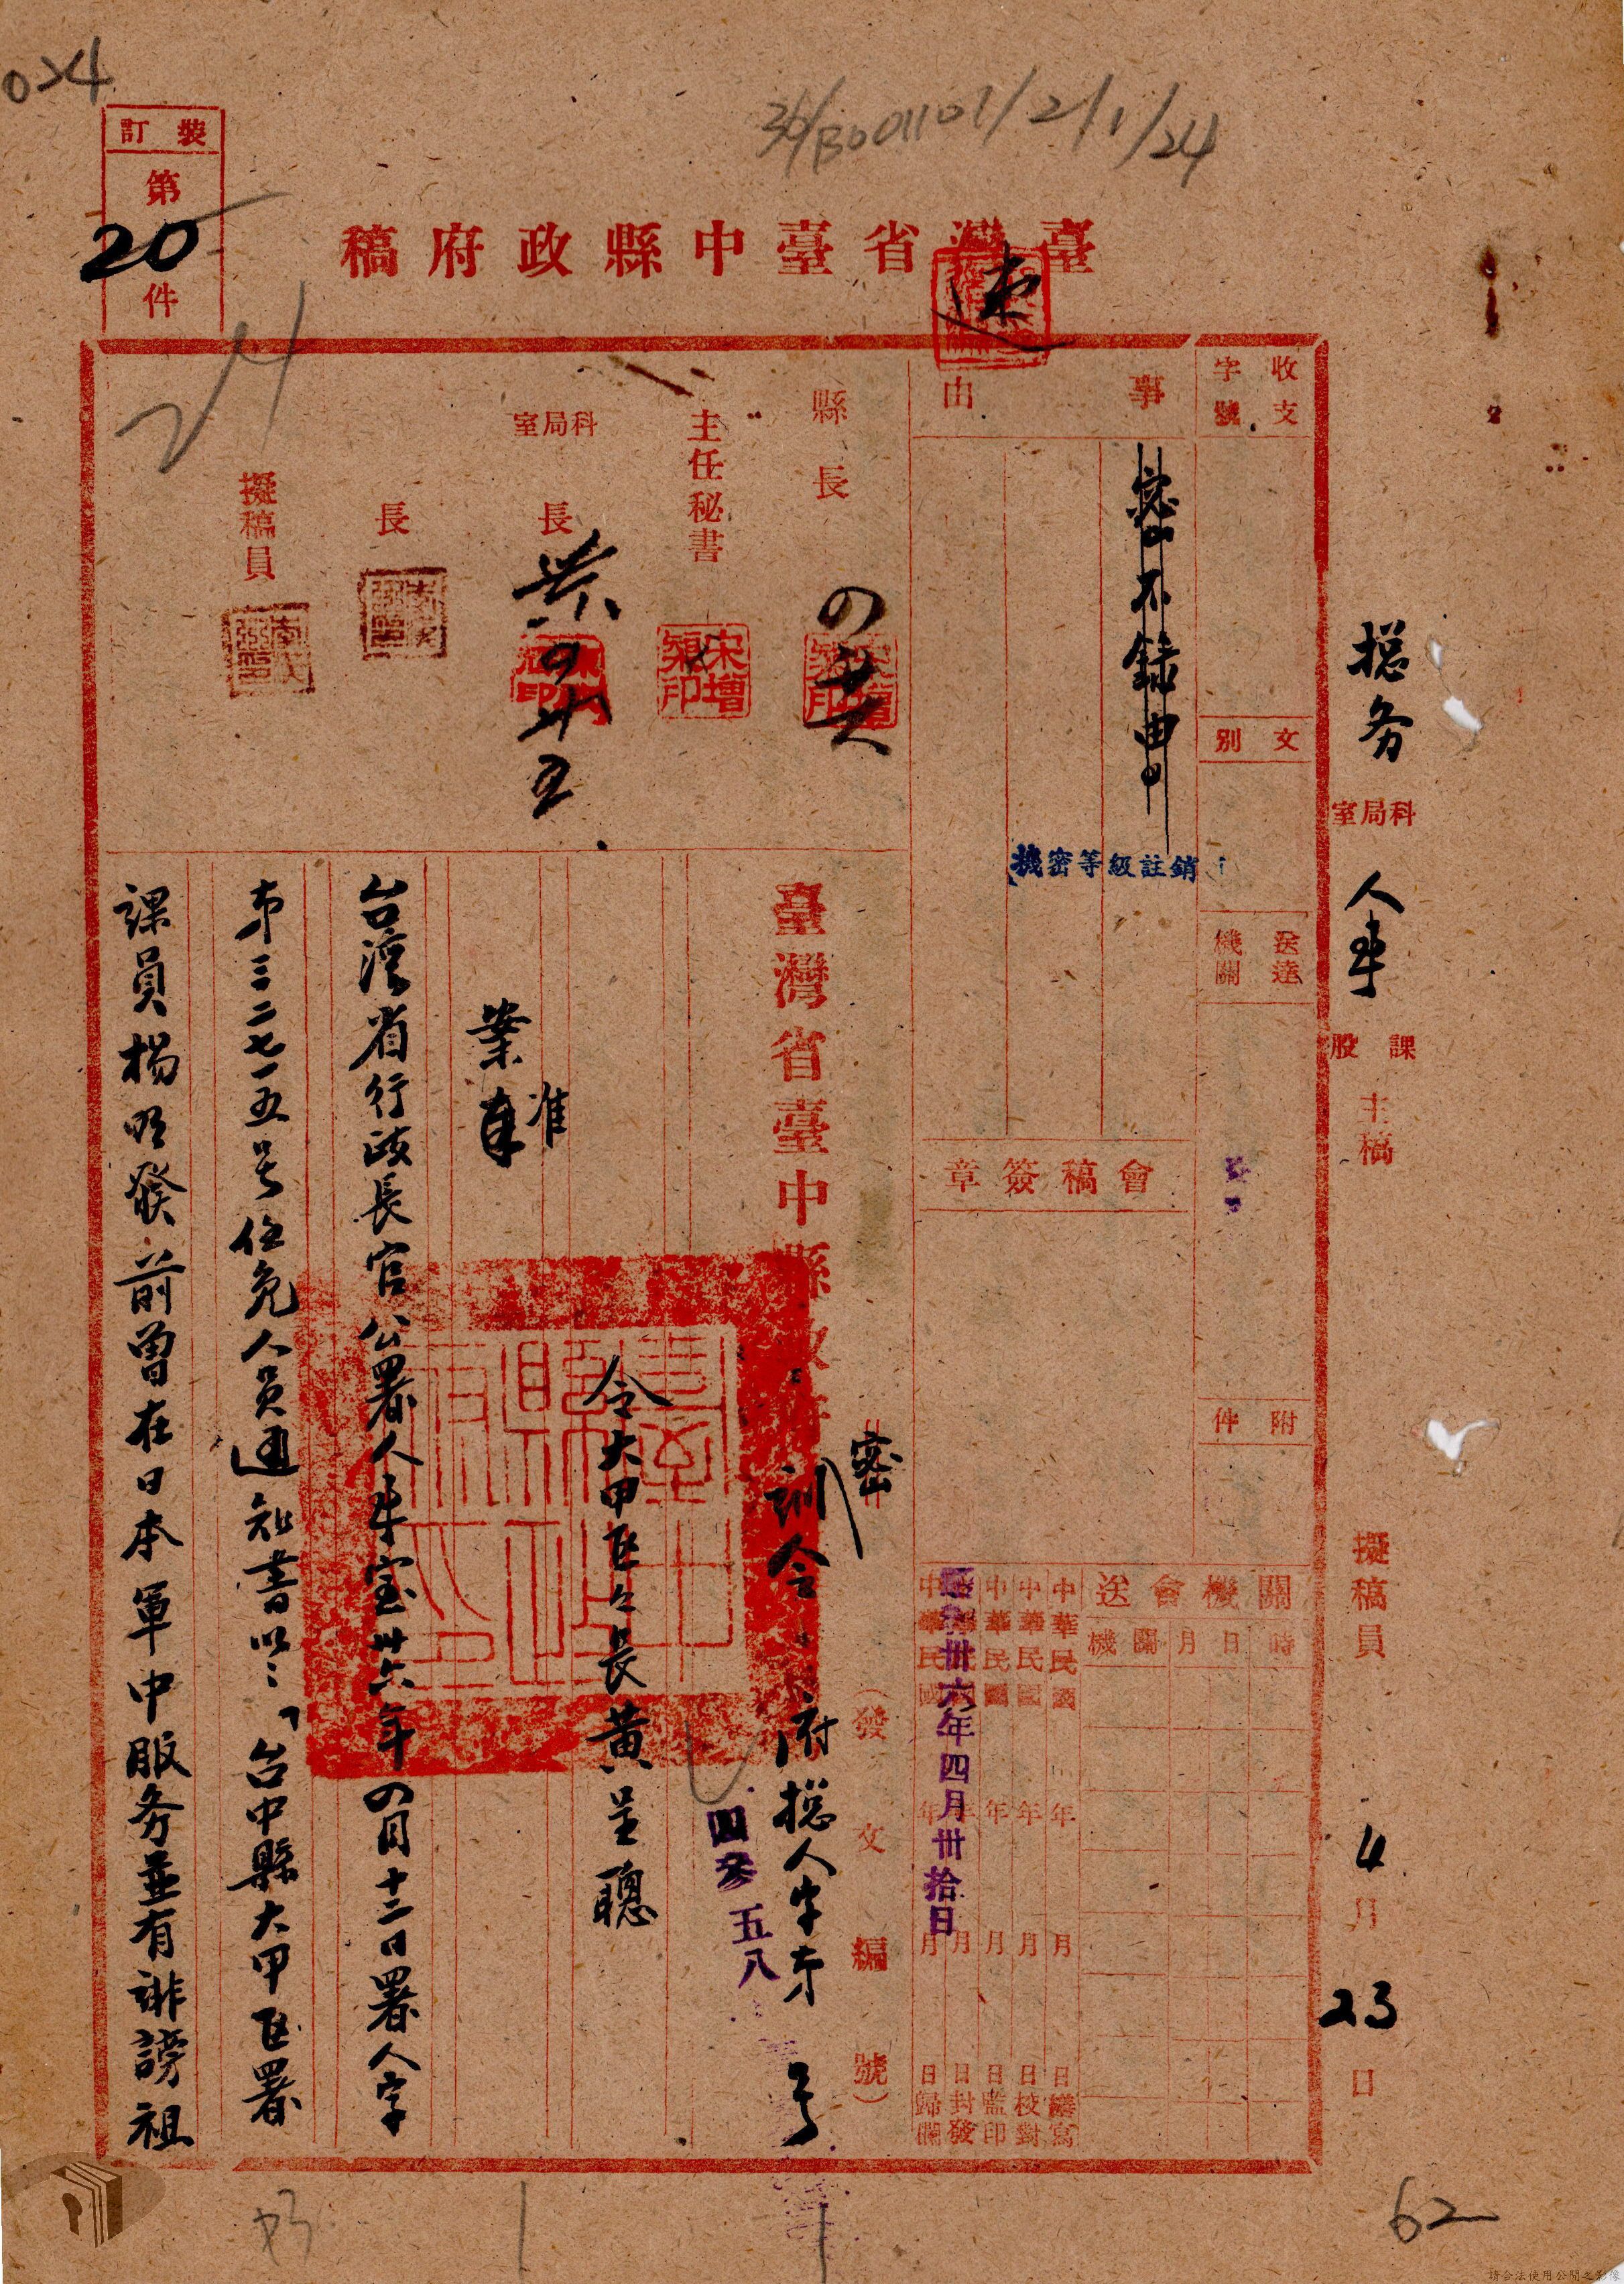 024
36/B001101/2/1/24
裝訂
第
20
件
24
臺灣省臺中縣政府稿
速
總務
科局室
人事
課股
主稿
擬稿員
4月23日
收支字號
文別
送達機關
附件
事由
密不錄由
機密等級註銷
會稿簽章
關機會送
時日月關機
中華民國 年 月 日繕寫
中華民國 年 月 日校對
中華民國 年 月 日監印
中華民國 年 月 日封發
中華民國 年 月 日歸檔
卅六年四月卅拾日
縣長
主任秘書
宋增榘印
科局室
長
四 廿五
長
擬稿員
臺灣省臺中縣政府訓令
密
府總人字第 號
(發文編號)
四參五八
令大甲區區長黃呈聰
案准
台灣省行政長官公署人事室卅六年四月十三日署人字
第三二七一五号任免人員通知書以:「台中縣大甲區署
課員楊明發前曾在日本軍中服务並有誹謗祖
62
請合法使用公開之影像